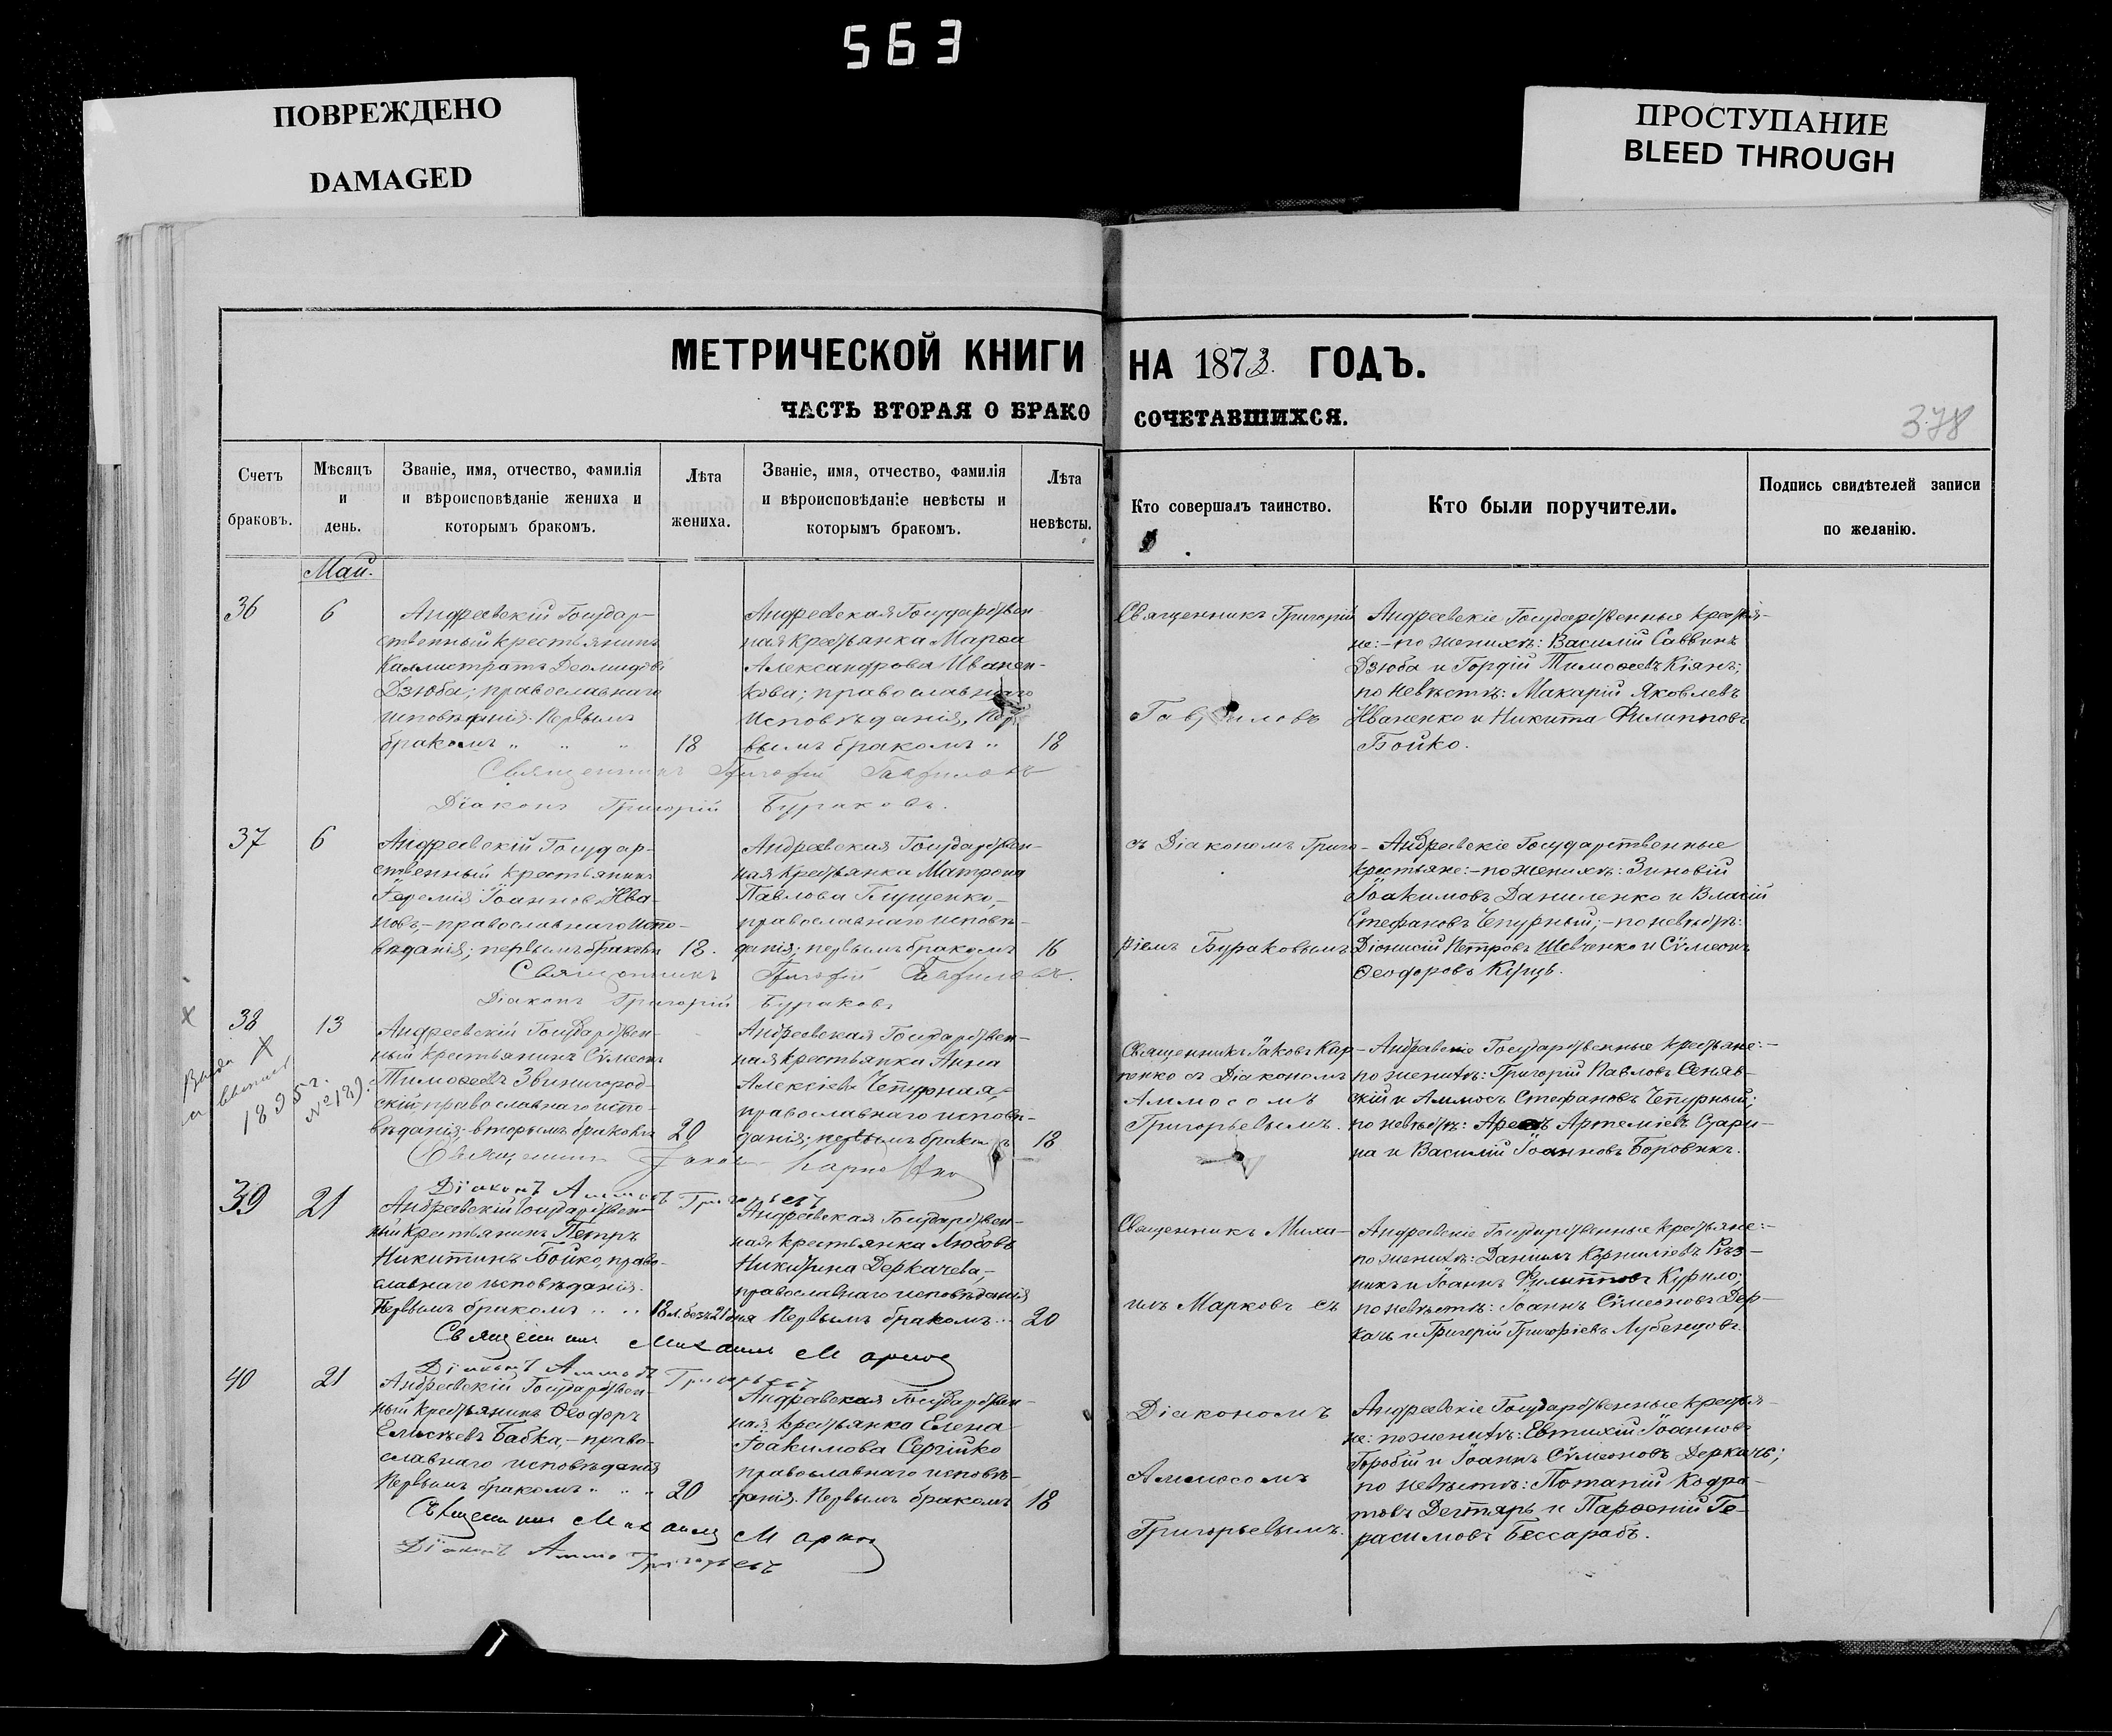 563
ПОВРЕЖДЕНО
DAMAGED
ПРОСТУПАНИЕ
BLEED THROUGH
МЕТРИЧЕСКОЙ КНИГИ НА 1873 ГОДЪ.
ЧАСТЬ ВТОРАЯ О БРАКОСОЧЕТАВШИХСЯ.
378
Счетъ
браковъ.
Мѣсяцъ
и
день.
Званіе, имя, отчество, фамилія
и вѣроисповѣданіе жениха и
которымъ бракомъ.
Лѣта
жениха.
Званіе, имя, отчество, фамилія
и вѣроисповѣданіе невѣсты и
которымъ бракомъ.
Лѣта
невѣсты.
Кто совершалъ таинство.
Кто были поручители.
Подпись свидѣтелей записи
по желанію.
Май.
36
6
Андреевскій Государ-
ственный крестьянинъ
Каллистратъ Деомидовъ
Дзюба; православнаго
исповѣданія. Первымъ
бракомъ " " "
18
Андреевская Государствен-
ная крестьянка Марѳа
Александрова Иванен-
кова; православнаго
исповѣданія, пер-
вымъ бракомъ "
18
Священникъ Григорій
Гавриловъ
Андреевскіе Государственные крестья-
не: - по женихѣ: Василій Саввинъ
Дзюба и Гордій Тимоѳеевъ Кіянъ;
по невѣстѣ: Макарій Яковлевъ
Иваненко и Никита Филипповъ
Бойко.
Священникъ Григорій Гавриловъ
Діаконъ Григорій Бураковъ.
37
6
Андреевскій Государ-
ственный крестьянинъ
Іеремія Іоанновъ Ива-
новъ, - православнаго испо-
вѣданія; первымъ бракомъ
18.
Андреевская Государствен-
ная крестьянка Матрона
Павлова
православнаго исповѣ-
данія; первымъ бракомъ
16
съ Діакономъ Григо-
ріемъ Бураковымъ
Андреевскіе Государственные
крестьяне: - по женихѣ: Зиновій
Іоакимовъ Даниленко и Власій
Стефановъ Чепурный; - по невѣстѣ:
Діонисій Петровъ Шевченко и Сѵмеонъ
Ѳеодоровъ
Священникъ Григорій Гавриловъ.
Діаконъ Григорій Бураковъ
Х
Х
1895 г.
№ 189.
38
13
Андреевскій Государствен-
ный крестьянинъ Сѵмеонъ
Тимоѳеевъ Звинигород-
скій, православнаго испо-
вѣданія; вторымъ бракомъ
20
Андреевская Государствен-
ная крестьянка Анна
Алексіева Чепурная, -
православнаго исповѣ-
данія; первымъ бракомъ
18
Священникъ Іаковъ Кар-
пенко съ Діакономъ
Аммосомъ
Григорьевымъ.
Андреевскіе Государственные крестьяне: -
по женихѣ: Григорій Павловъ Сеняв-
скій и Аммосъ Стефановъ Чепурный;
по невѣстѣ: Артеміевъ Скари-
на и Василій Іоанновъ Боровикъ.
Священникъ Іаковъ Карпенко
Діаконъ Аммосъ Григорьевъ
39
21
Андреевскій Государствен-
ный крестьянинъ Петръ
Никитинъ Бойко, право-
славнаго исповѣданія.
Первымъ бракомъ
18 л. безъ 21 дня
Андреевская Государствен-
ная крестьянка Любовь
Никитина Деркачева, -
православнаго исповѣданія
Первымъ бракомъ
20
Священникъ Миха-
илъ Марковъ съ
Андреевскіе Государственные крестьяне: -
по женихѣ: Даніилъ Корниліевъ Рѣз-
никъ и Іоаннъ Филипповъ Курило;
по невѣстѣ: Іоаннъ Сѵмеоновъ Дер-
качъ и Григорій Григоріевъ Лубенцовъ.
Священникъ Михаилъ Марковъ
Діаконъ Аммосъ Григорьевъ
40
21
Андреевскій Государствен-
ный крестьянинъ Ѳеодоръ
Елисѣевъ Бабка, - право-
славнаго исповѣданія
Первымъ бракомъ " " "
20
Андреевская Государствен-
ная крестьянка Елена
Іоакимова Сергійко
православнаго исповѣ-
данія. Первымъ бракомъ
18
Діакономъ
Аммосомъ
Григорьевымъ.
Андреевскіе Государственные крестья-
не: по женихѣ: Евтихій Іоанновъ
Горобій и Іоаннъ Сѵмеоновъ Деркачъ;
по невѣстѣ: Потапій Кодра-
товъ Дегтярь и Парѳеній Ге-
расимовъ Бессарабъ.
Священникъ Михаилъ Марковъ
Діаконъ Аммосъ Григорьевъ